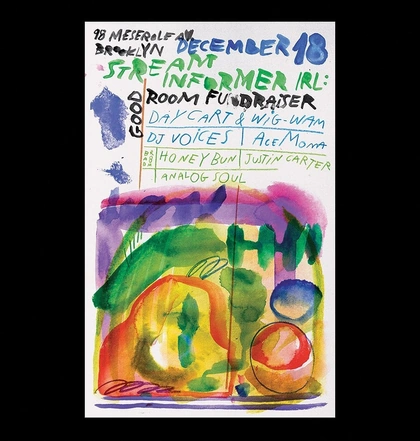 98 MESEROLE AV.
BROOKLYN DECEMBER 18
STREAM
INFORMER IRL:
GOOD ROOM FUNDRAISER
DAYCART & WIG-WAM
DJ VOICES | ACEMOMA
BAD ROOM HONEY BUN | JUSTIN CARTER
ANALOG SOUL